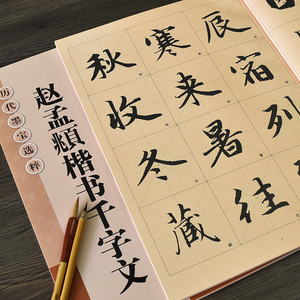 历代墨宝选粹
赵孟頫楷书千字文
辰宿列
寒来暑往
秋收冬藏